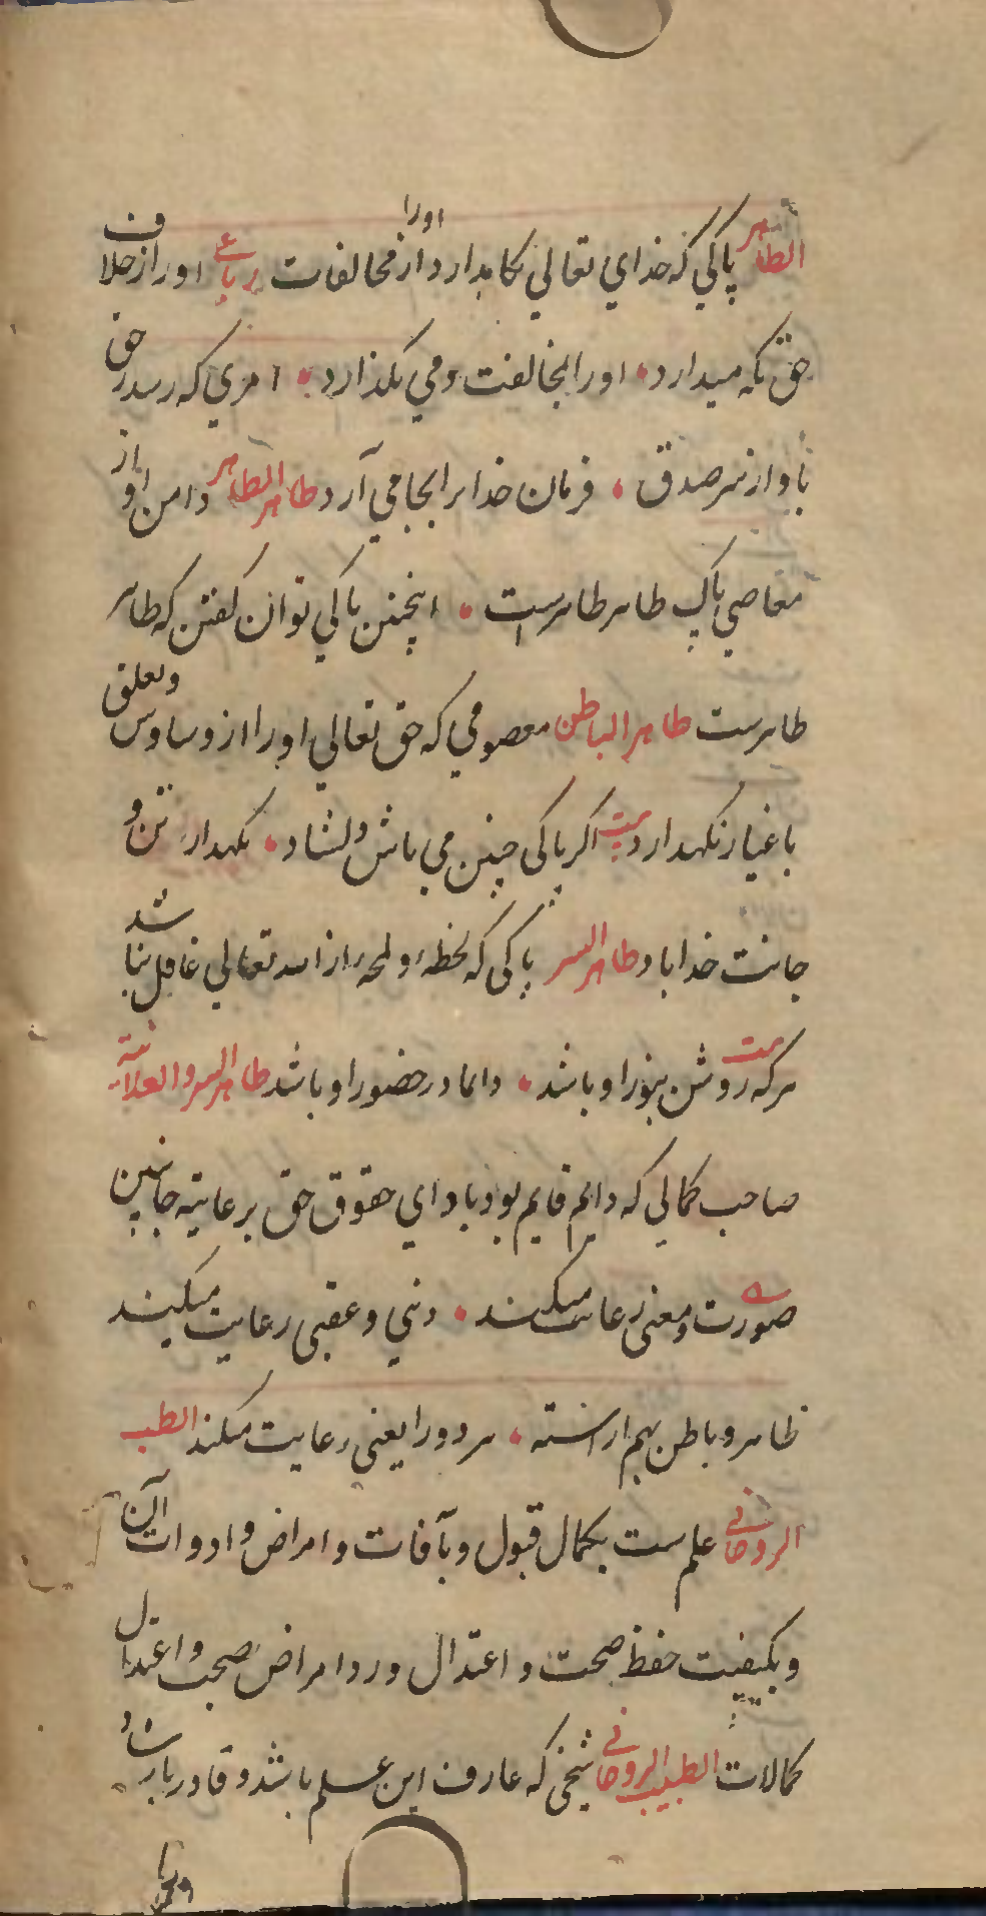 الطاهر پاكي كه خداي تعالي نكاهدارد اورا از مخالفات رباعي اورا از خلاف
حق نكه ميدارد اورا بمخالفت ومي نكذارد امري كه رسد ز حق
باو از سر صدق فرمان خدا برابجا مي آرد طاهر الظاهر دامن او از
معاصي پاك طاهر طاهرست اينچنين پاكي توان كفتن كه طاهر
طاهرست طاهر الباطن معصومي كه حق تعالي اورا از وساوس وتعلق
باغيار نكهدارد بيت اكر پاكي چنين مي باش دلشاد نكهدار تن و
جانت خدا باد طاهر السر پاكي كه لحظه ولمحه از الله تعالي غافل نباشد
بيت هركه روشن بنور او باشد دائما در حضور او باشد طاهر السر والعلانية
صاحب كمالي كه دايم قايم بود باداي حقوق حق برعاية جانبين
صورت ومعني رعايت ميكند دنيي وعقبي رعايت ميكند
ظاهر وباطن بهم اراسته هر دو را يعني رعايت ميكند الطب
الروحاني علمست بكمال قبول وبآفات وامراض وادوات آن
وبكيفيت حفظ صحت و اعتدال ورد امراض بصحت واعتدال
كمالات الطبيب الروحاني شيخي كه عارف اين علم باشد وقادر بارشاد